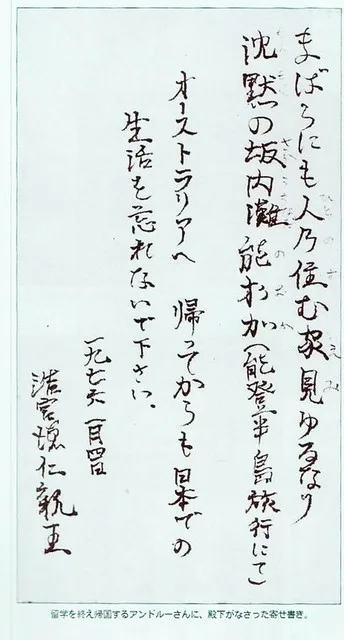 まばらにも人乃住む家見ゆるなり
沈黙の坂内灘能おか(能登半島旅行にて)
オーストラリアへ 帰ってからも日本での
生活を忘れないで下さい。
一九七六 一月四日
浩宮徳仁親王
留学を終え帰国するアンドルーさんに、殿下がなさった寄せ書き。